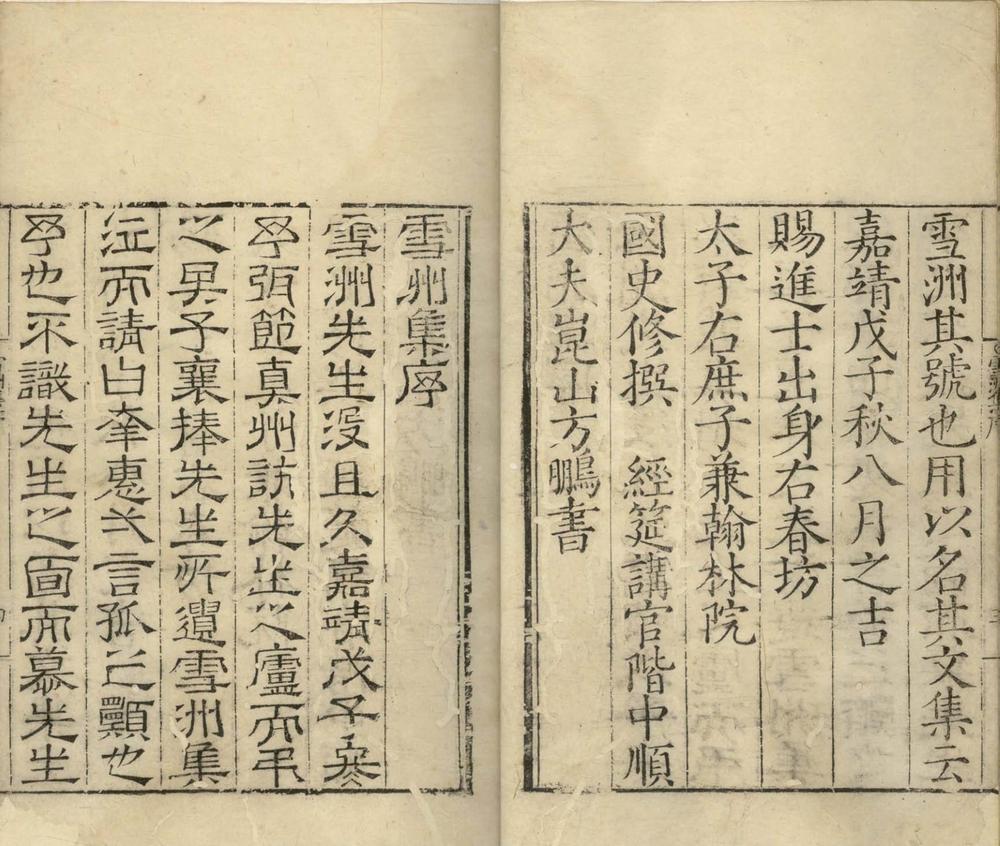 雪洲其號也用以名其文集云
嘉靖戊子秋八月之吉
賜進士出身右春坊
太子右庶子兼翰林院
國史修撰 經筵講官階中順
大夫崑山方鵬書
雪州集序
雪洲先生沒且久嘉靖戊子冬
予弭節真州訪先生之廬而弔
之子襄捧先生所遺雪洲集
泣而請曰幸惠弌言孤之願也
予也不識先生之面而慕先生